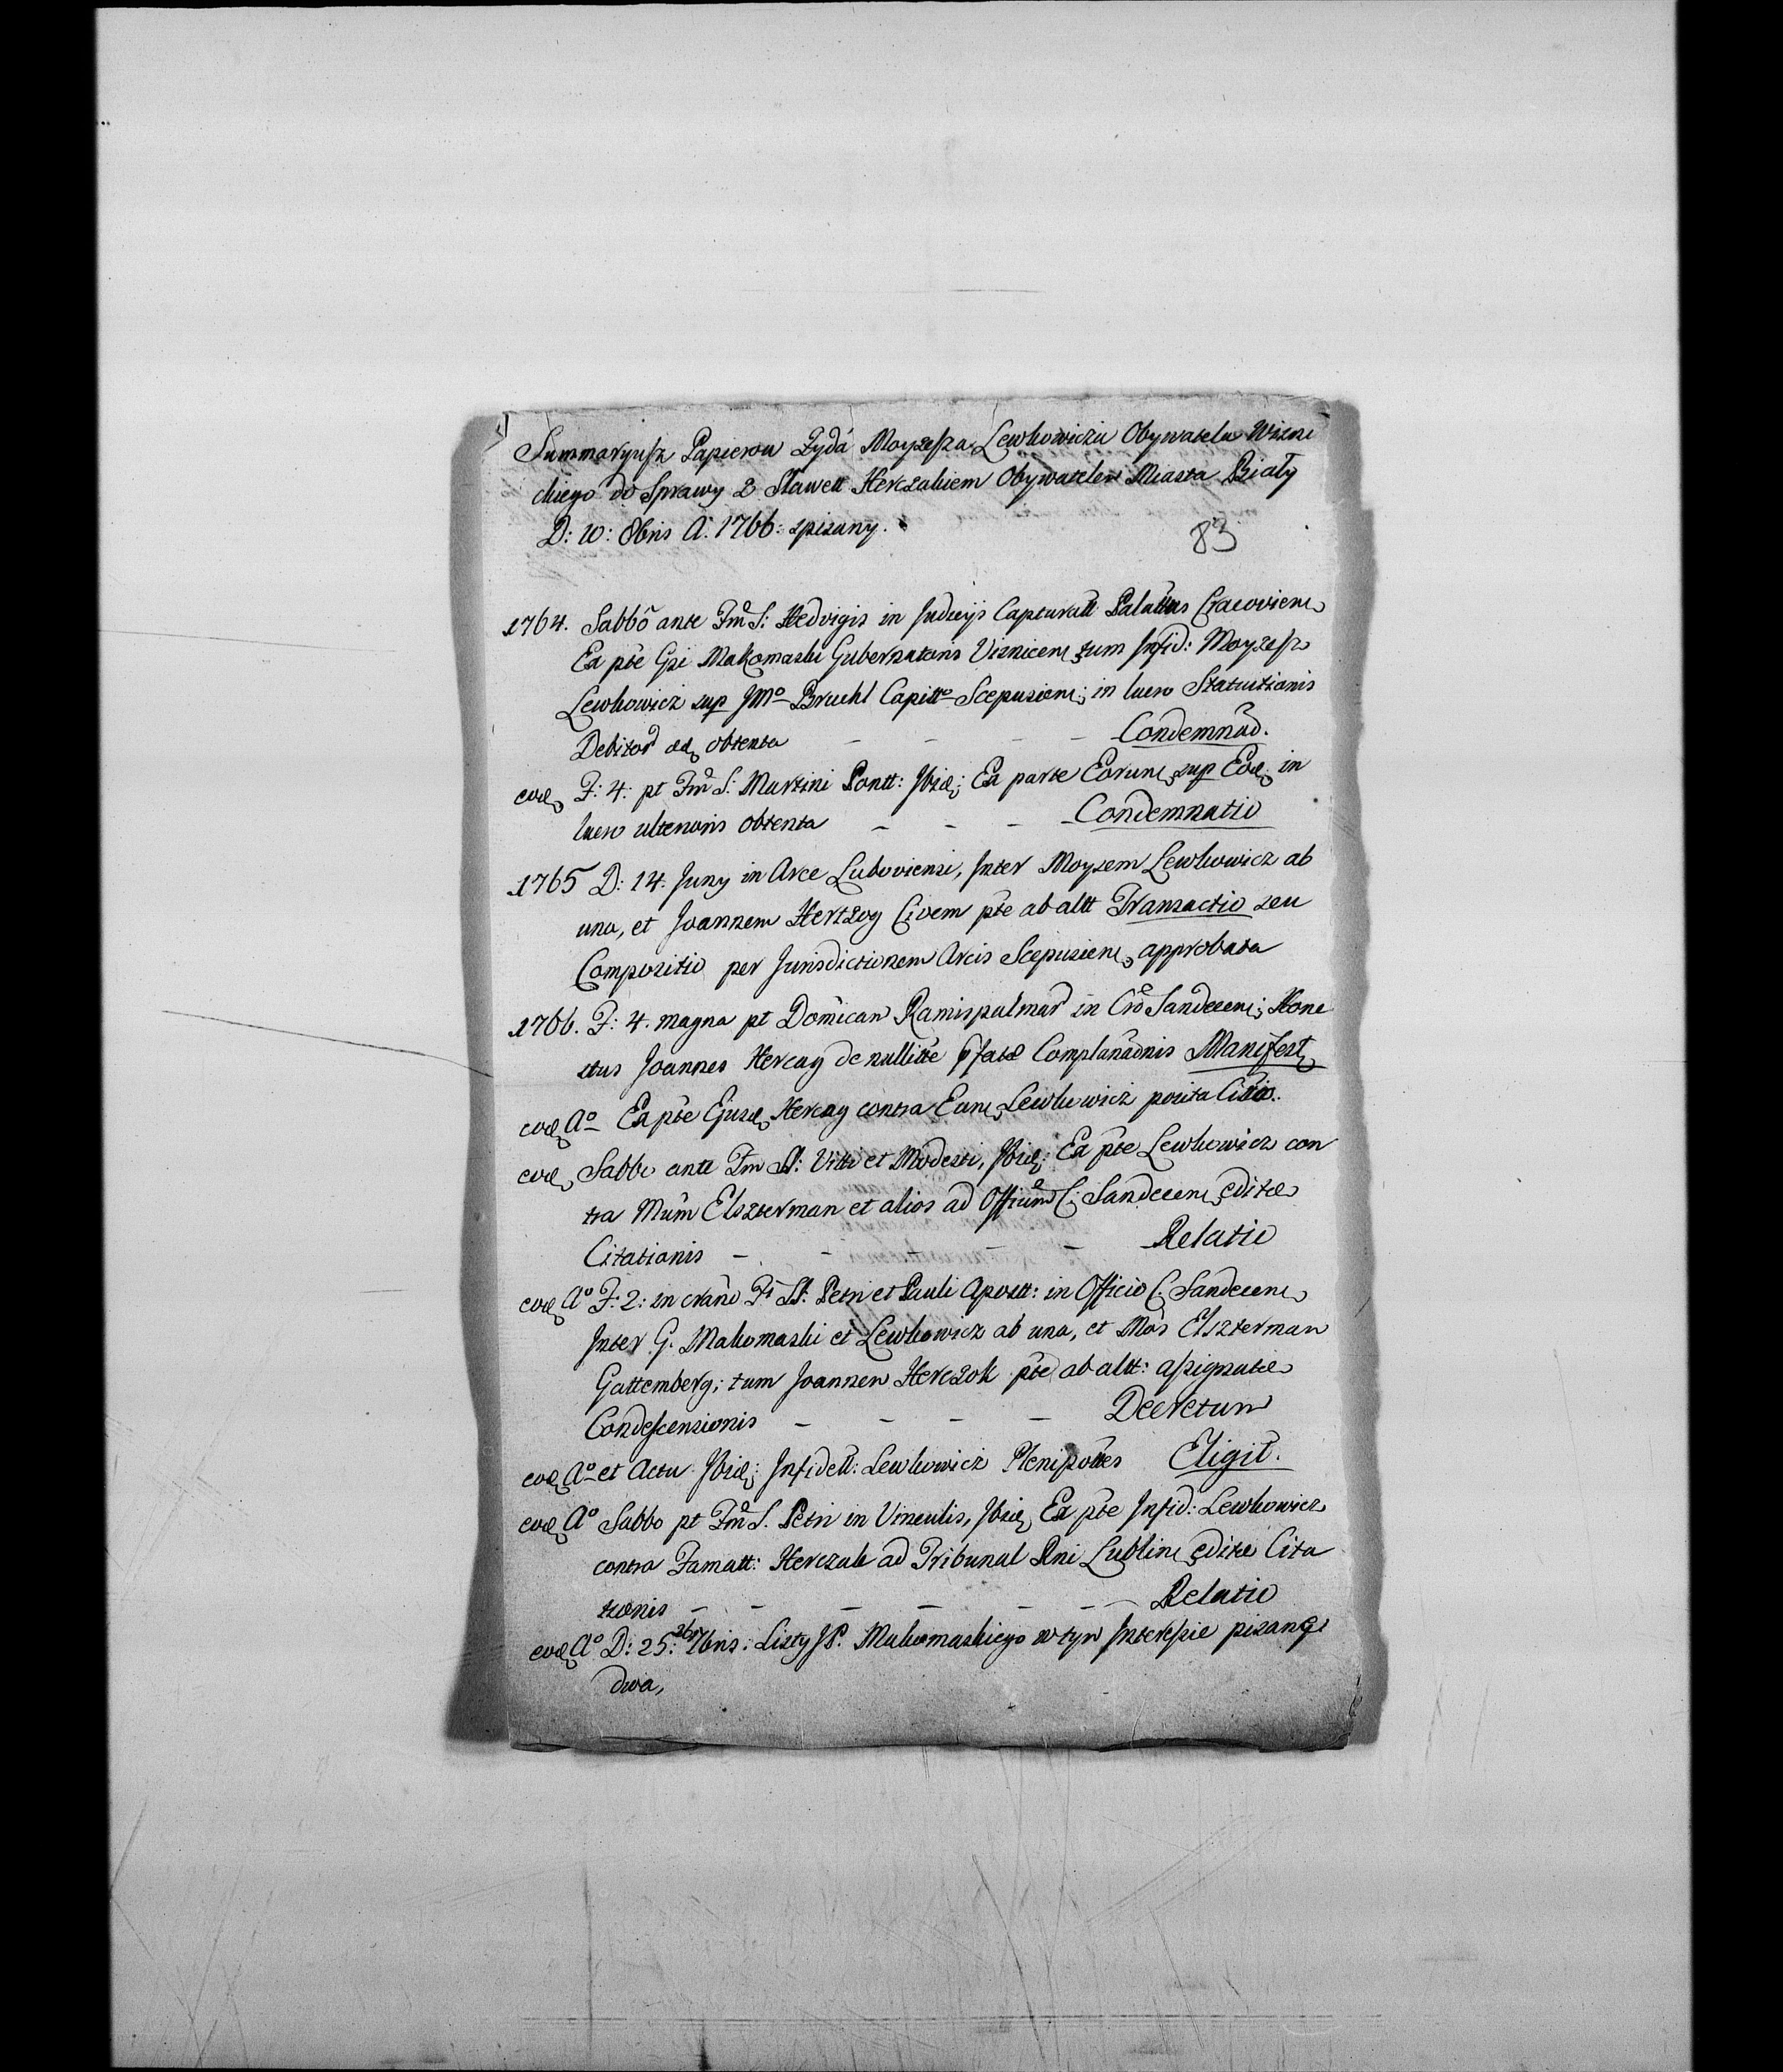 Summaryusz Papierow Żyda Moyzesza Lewkowicza Obywatela Wiszni
ckiego do Sprawy z Sławett Herczakiem Obywatelem Miasta Biały
D: 10: 8bris A. 1766: spisany.
83
1764. Sabbo ante Fm S: Hedvigis in Judicijs Capturall Palattus Cracovien
Ex pte Gsi Makomaski Gubernatoris Visnicen, tum Infid: Moyzesz
Lewkowicz sup JMo Bruchl Capitto Scepusien; in lucro Statutionis
Debitor ad obtenta - - - - Condemnad.
eod F: 4: pt Fm S: Martini Pontt: Ibid; Ex parte Eorum, sup Eod, in
lucro ulterioris obtenta - - - Condemnatio
1765 D: 14. Juny in Arce Luboviensi, Inter Moysem Lewkowicz ab
una, et Joannem Hertzog Civem pte ab altt Transactio seu
Compositio per Jurisdictionem Arcis Scepusien, approbata
1766. F: 4. magna pt Domican Ramispalmar in Cro Sandecen; Hone
stus Joannes Hercag de nullitte pfatae Complanaonis Manifest
eod Ao Ex pte Ejusd, Hercag contra Eum, Lewkowicz posita Citio.
eod, Sabbo ante Fm SS: Viti et Modesti, Ibid; Ex pte Lewkowicz con
tra Mum Elszterman et alios ad Officium C. Sandecen, editae
Citationis - - - - - Relatio
eod Ao F: 2: in crano Fi SS. Petri et Pauli Apostt: in Officio C. Sandecen
Inter G. Makomaski et Lewkowicz ab una, et Mos Elszterman
Gattemberg; tum Joannem Herczok pte ab altt: assignatae
Condescensionis - - - - Decretum
eod Ao et Actu Ibid; Infidell: Lewkowicz Plenipottes Eligit.
eod Ao Sabbo pt Fm S. Petri in Vinculis, Ibid, Ex pte Infid: Lewkowicz
contra Famatt: Herczak ad Tribunal Rni Lublin, editae Cita
tionis - - - - - - Relatio
eod Ao D: 25: 26 7bris: Listy JP. Makomaskiego w tym Interesie pisane
dwa,